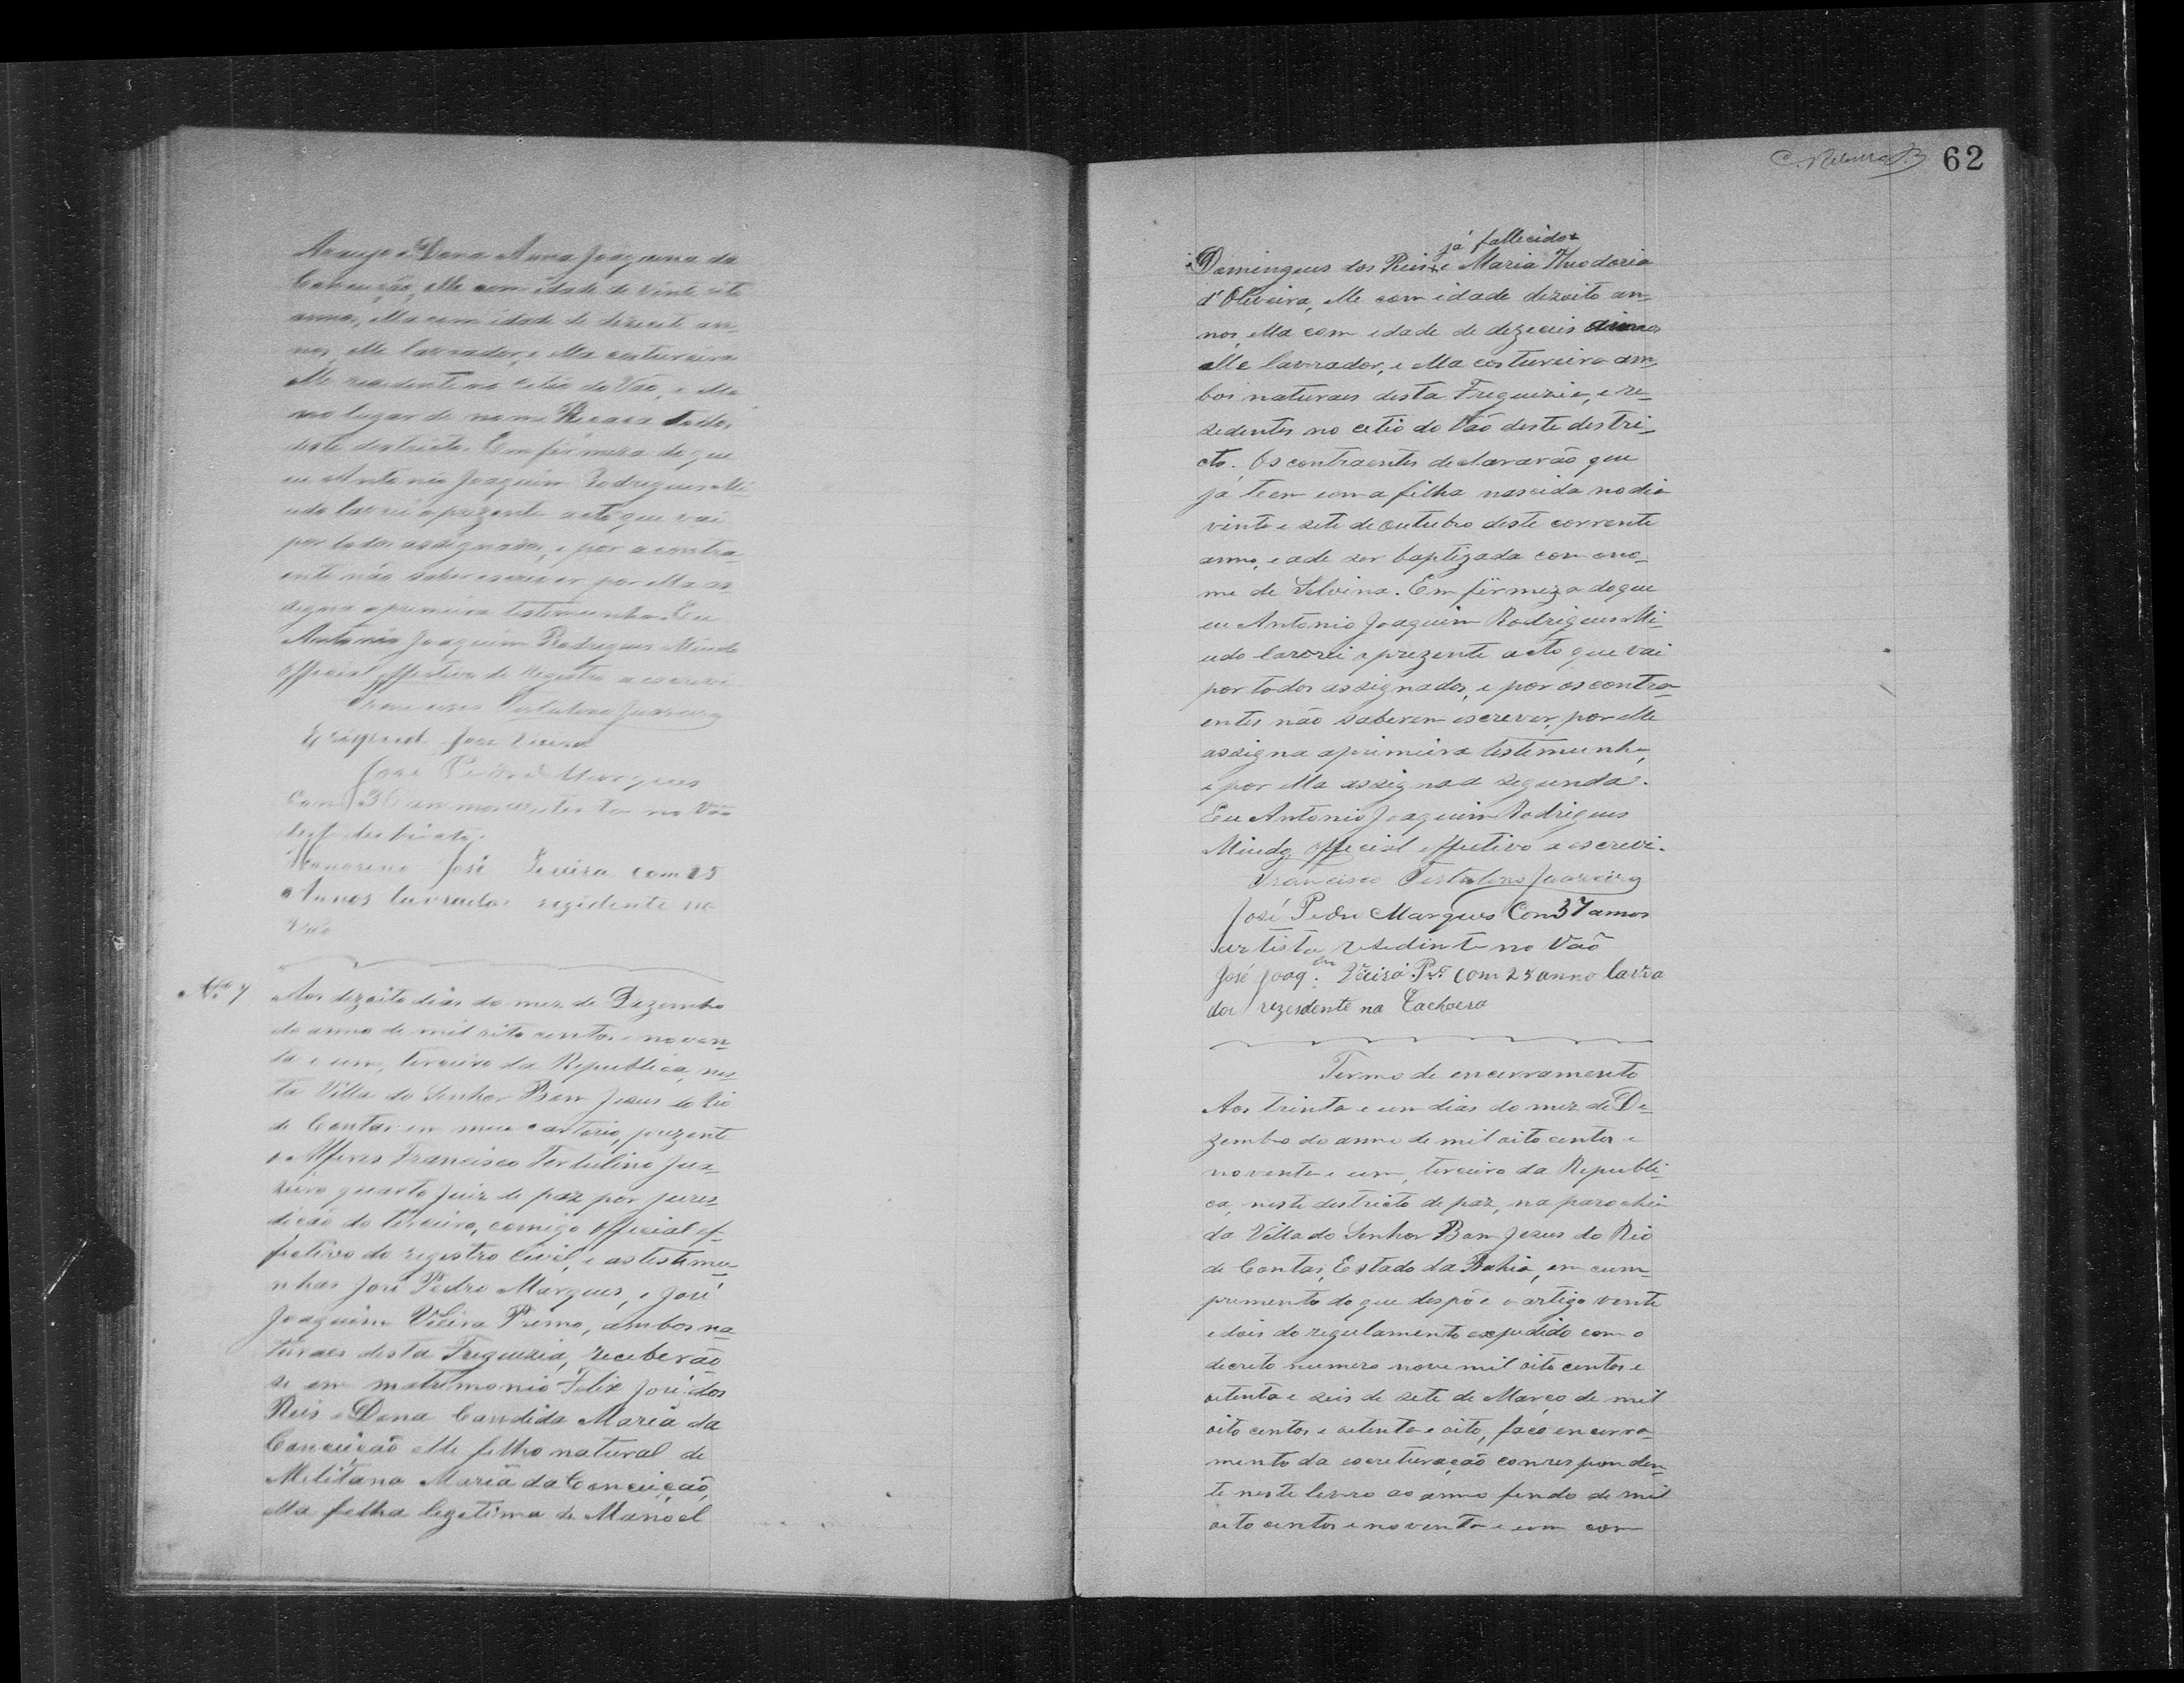 Araujo e Dona Anna Joaquina da
Conceição, elle com idade de vinte oito
annos, ella com idade de dezoito an-
nos, elle lavrador, e ella costureira
elle rezidente no citio do Vão, e ella
no lugar de nome
deste destricto. Em firmeza do que
eu Antonio Joaquim Rodrigues Mi-
udo lavrei o prezente acto que vai
por todos assignados, e por a contra-
ente não saber escrever por ella as-
signa a primeira testemunha. Eu
Antonio Joaquim Rodrigues Miudo
official effectivo do registro a escrevi
Francisco Tertulino Juazeiro
José Vieira
José Pedro Marques
Com 36 annos artista no Vão
deste destricto.
José Pereira com 25
Annos lavrador rezidente no
Vão
Nº 7
Aos dezoito dias do mez de Dezembro
do anno de mil oito centos e noven-
ta e um, terceiro da Republica, nes-
ta Villa do Senhor Bom Jezus do Rio
de Contas em meu cartorio, prezente
o Alferes Francisco Tertulino Jua-
zeiro quarto juiz de paz por juris-
dição do terceiro, comigo official ef-
fectivo do registro Civil, e as testemu-
nhas José Pedro Marques, e José
Joaquim Vieira Primo, ambos na-
turaes desta Freguezia, receberão
se em matrimonio Felix José dos
Reis e Dona Candida Maria da
Conceição elle filho natural de
Melitana Maria da Conceição,
ella filha legitima de Manoel
62
já fallecidos
Domingues dos Reis e Maria Theodoria
d'Oliveira, elle com idade dezoito an-
nos, ella com edade de dezeceis annos
elle lavrador, e ella costureira am-
bos naturaes desta Freguezia, e re-
zedentes no citio do Vão deste destri-
cto. Os contraentes declararão que
já teem uma filha nascida no dia
vinte e sete de outubro deste corrente
anno, e ade ser baptizada com o no-
me de Selvina. Em firmeza do que
eu Antonio Joaquim Rodrigues Mi-
udo lavrei o prezente acto que vai
por todos assignados, e por os contra-
entes não saberem escrever, por elle
assigna a primeira testemunha,
e por ella assigna a segunda.
Eu Antonio Joaquim Rodrigues
Miudo, official effectivo a escrevi.
Francisco Tertulino Juazeiro
José Pedro Marques Com 37 annos
artista rezedinte no Vão
José Joaq.m Vieira Pr.º com 25 anno lavra
dor rezesdente na Cachoera
Termo de encerramento
Aos trinta e um dias do mez de De-
zembro do anno de mil oito centos e
noventa e um, terceiro da Republi-
ca, neste destricto de paz, na parochia
da Villa do Senhor Bom Jezus do Rio
de Contas, Estado da Bahia, em cum-
primento do que despõe o artigo vente
e dois do regulamento expedido com o
decreto numero nove mil oito centos e
oitenta e seis de sete de Março de mil
oito centos e oitenta e oito, faço encerra-
mento da escreturação correspunden-
te neste levro ao anno findo de mil
oito centos e noventa e um com